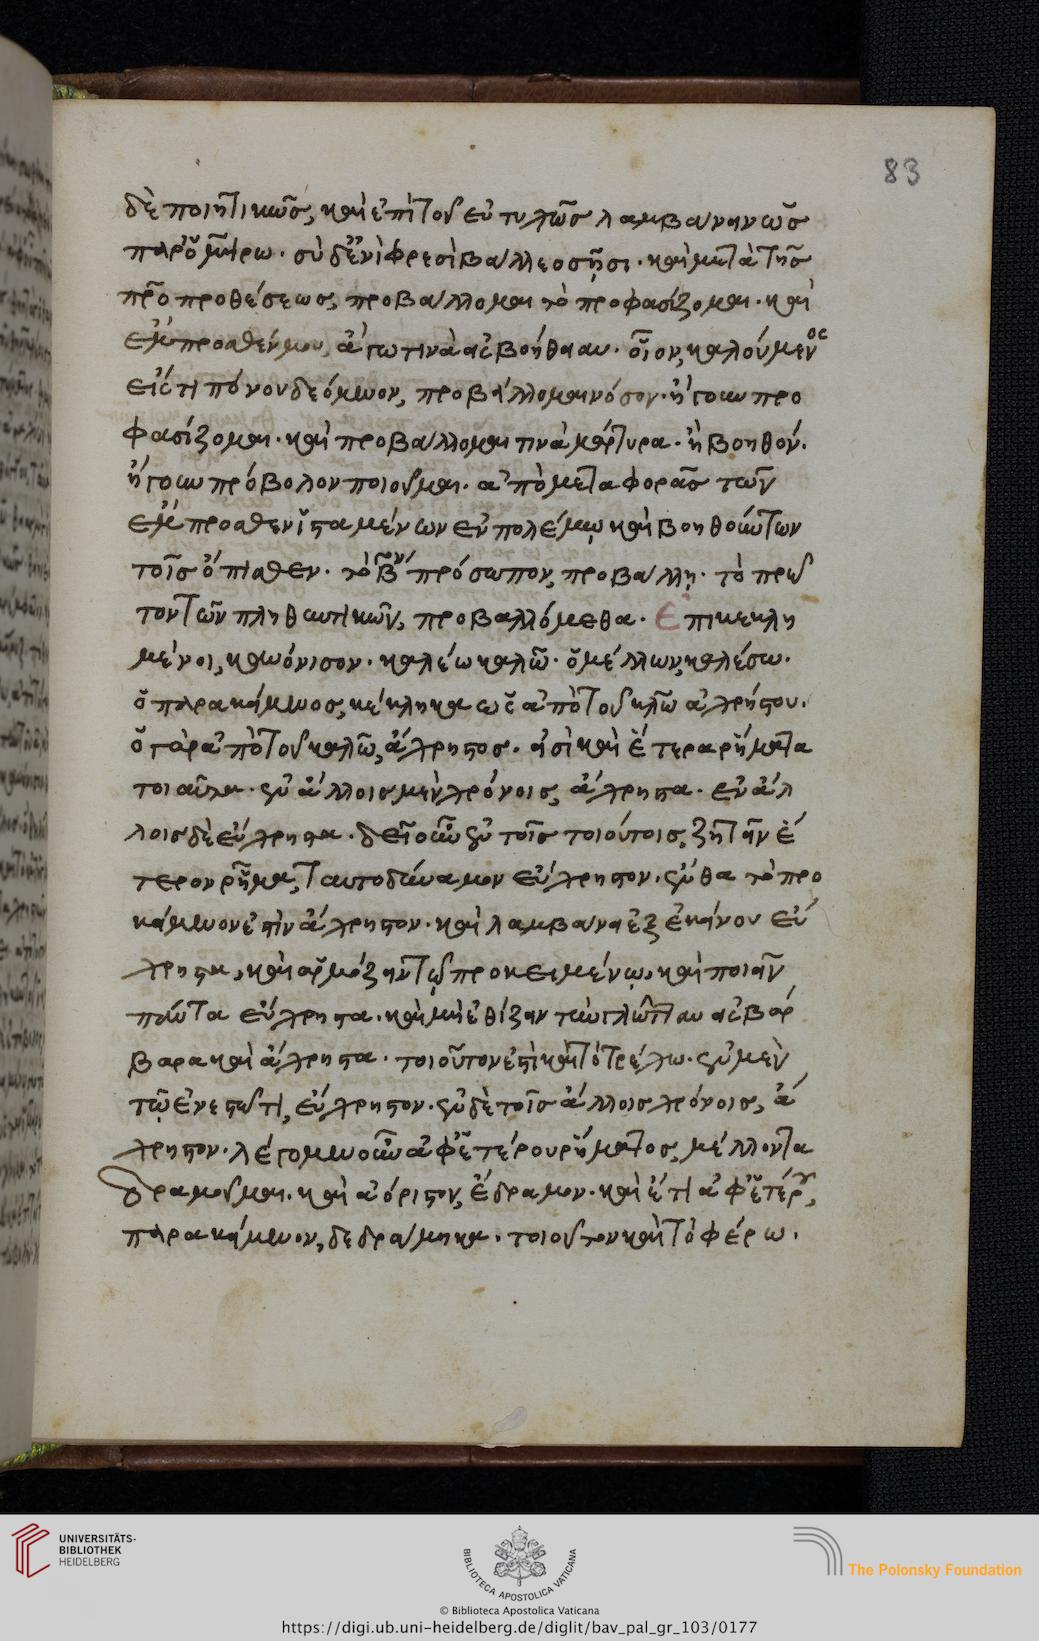 83
δὲ ποιητικῶς, καὶ ἐπὶ τοῦ εὐτυχῶς λαμβάνειν ὡς
παρ' ὁμήρω · σὺ δ' ἐνὶ φρεσὶ βάλλεο σῇσι · καὶ μετὰ τῆς
πρὸ προθέσεως, προβάλλομαι τὸ προφασίζομαι · καὶ
ἔμπροσθέν μου, ἄγω τινὰ εἰς βοήθειαν · οἷον, καλούμενος
εἰς τι πόνου δεόμενον, προβάλλομαι νόσον · ἤγουν προ
φασίζομαι · καὶ προβάλλομαι τινὰ μάρτυρα · ἢ βοηθόν ·
ἤγουν πρόβολον ποιοῦμαι · ἀπὸ μεταφορᾶς τῶν
ἔμπροσθεν ἱσταμένων ἐν πολέμῳ καὶ βοηθούντων
τοῖς ὄπισθεν · τὸ βον πρόσωπον, προβάλλῃ · τὸ πρῶ
τον τῶν πληθυντικῶν, προβαλλόμεθα · Ἐπικεκλη
μένοι, κανόνισον · καλέω καλῶ · ὁ μέλλων, καλέσω ·
ὁ παρακείμενος, κέκληκα ὡς ἀπὸ τοῦ κλῶ ἀχρήστου ·
ὁ γὰρ ἀπὸ τοῦ καλῶ, ἄχρηστος · εἰσὶ καὶ ἕτερα ῥήματα
τοιαῦτα · ἐν ἄλλοις μὲν χρόνοις, ἄχρηστα · ἐν ἄλ
λοις δὲ εὔχρηστα · δεῖ οὖν ἐν τοῖς τοιούτοις, ζητεῖν ἕ
τερον ῥῆμα, ταυτοδύναμον εὔχρηστον · ἔνθα τὸ προ
κείμενον ἐστὶν ἄχρηστον · καὶ λαμβάνει ἐξ ἐκείνου εὔ
χρηστα, καὶ ἁρμόζειν τῷ προκειμένῳ, καὶ ποιεῖν
πάντα εὔχρηστα · καὶ μὴ ἐθίζειν τὴν γλῶτταν εἰς βάρ
βαρα καὶ ἄχρηστα · τοιοῦτον ἐστὶ καὶ τὸ τρέχω · ἐν μὲν
τῷ ἐνεστῶτι, εὔχρηστον · ἐν δὲ τοῖς ἄλλοις χρόνοις, ἄ
χρηστον · λέγομεν οὖν ἀφ' ἑτέρου ῥήματος, μέλλοντα
δραμοῦμαι · καὶ ἀόριστον, ἔδραμον · καὶ ἔτι ἀφ' ἑτέρου,
παρακείμενον, δεδράμηκα · τοιοῦτον καὶ τὸ φέρω ·
UNIVERSITÄTS-
BIBLIOTHEK
HEIDELBERG
BIBLIOTHECA APOSTOLICA VATICANA
The Polonsky Foundation
© Biblioteca Apostolica Vaticana
https://digi.ub.uni-heidelberg.de/diglit/bav_pal_gr_103/0177